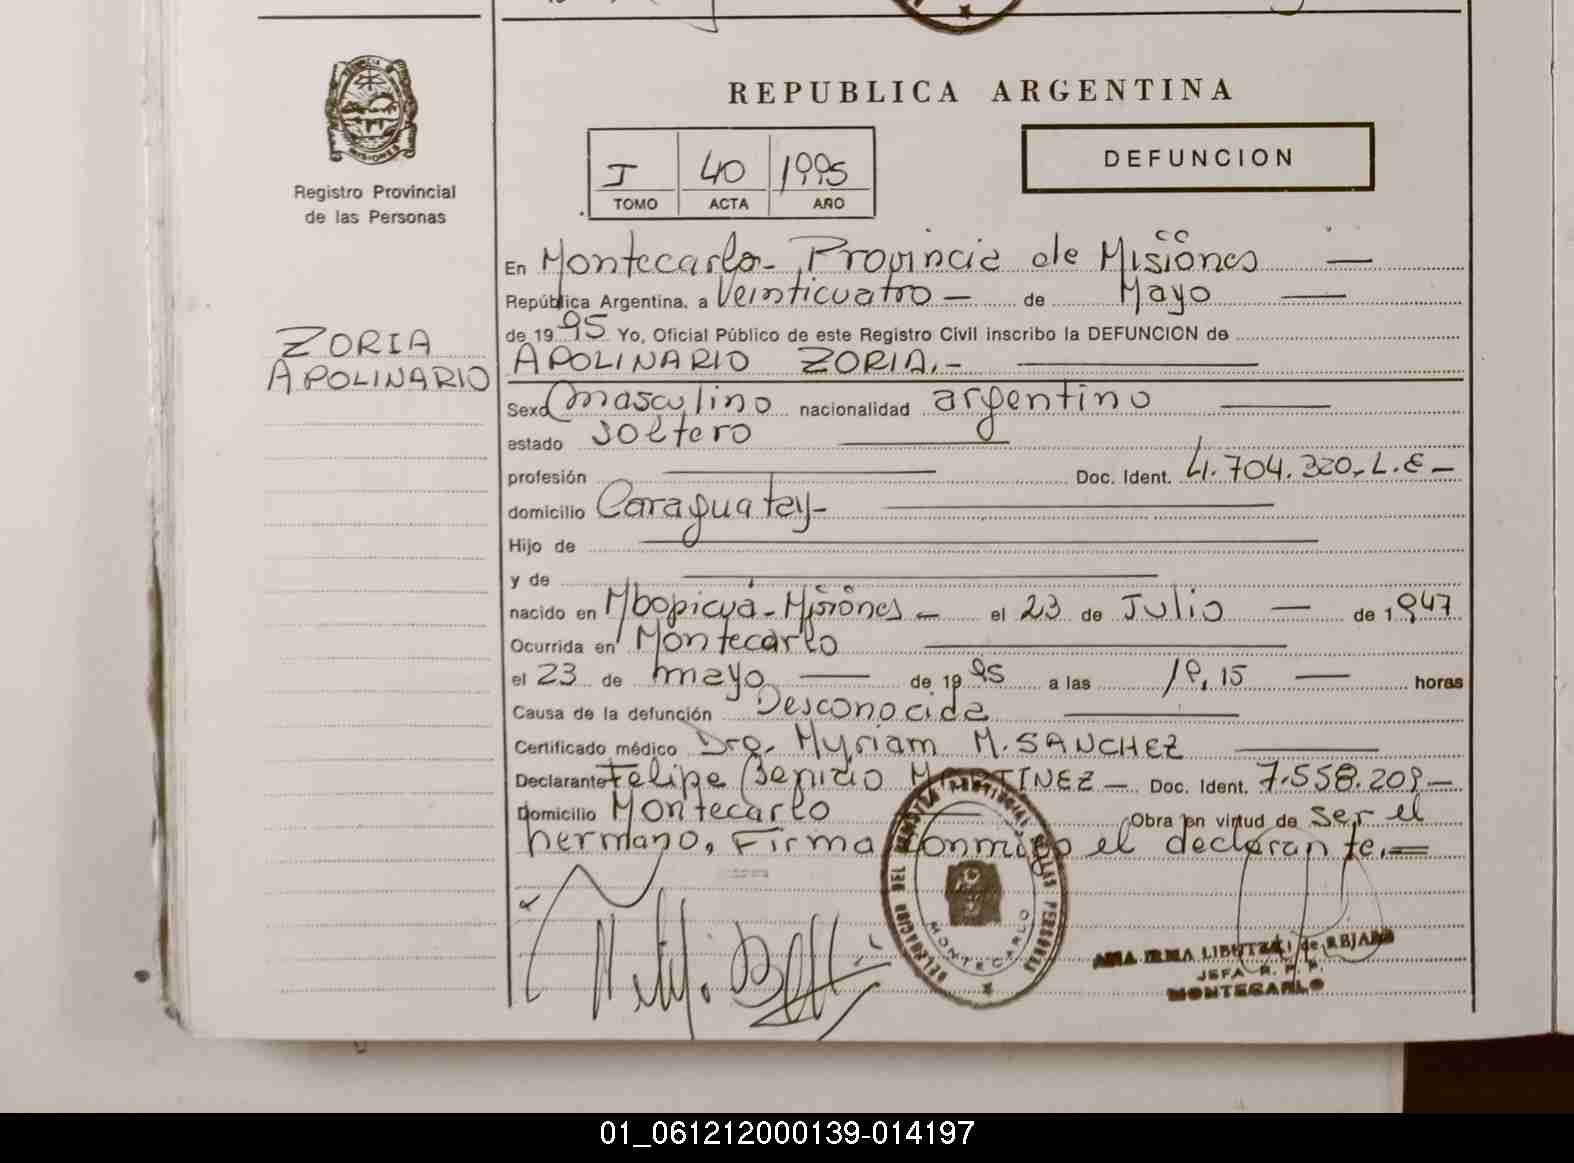 REPUBLICA ARGENTINA
PROVINCIA DE
MISIONES
Registro Provincial
de las Personas
I 40 1995
TOMO ACTA AÑO
DEFUNCION
En Montecarlo- Provincia de Misiones —
República Argentina, a Veinticuatro — de Mayo —
de 1995 Yo, Oficial Público de este Registro Civil inscribo la DEFUNCION de
APOLINARIO ZORIA.-
ZORIA
APOLINARIO
Sexo Masculino nacionalidad argentino
estado Soltero
profesión Doc. Ident. 4.704.320.-L.E-
domicilio Caraguatay-
Hijo de
y de
nacido en Mbopicua-Misiones- el 23 de Julio — de 1947
Ocurrida en Montecarlo
el 23 de mayo — de 1995 a las 19,15 — horas
Causa de la defunción Desconocida
Certificado médico Dra. Myriam M. SANCHEZ
Declarante Felipe Benicio MARTINEZ- Doc. Ident. 7.558.209-
Domicilio Montecarlo Obra en virtud de ser el
hermano, Firma conmigo el declarante.=
DELEGACION DEL REGISTRO PROVINCIAL DE LAS PERSONAS
MONTECARLO
ANA IRMA de REJALA
JEFA R. P. P.
MONTECARLO
01_061212000139-014197